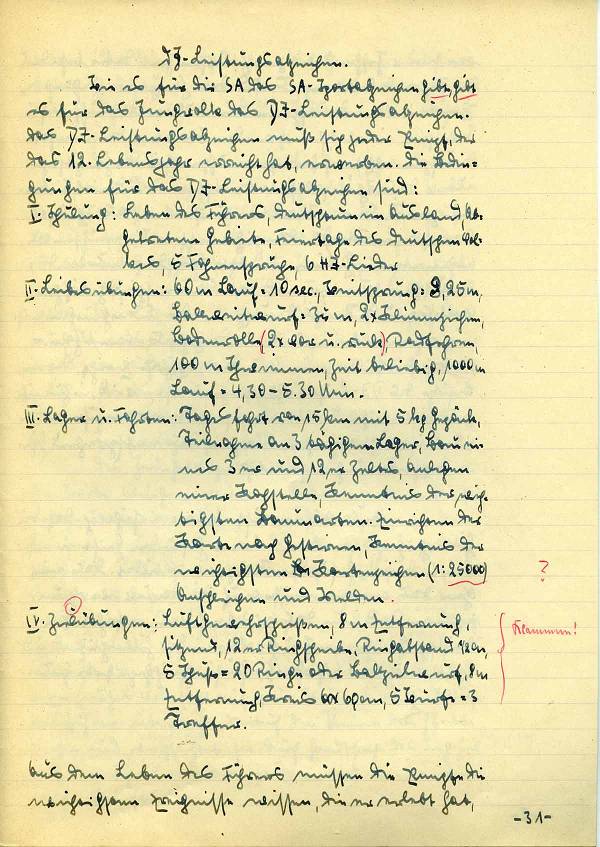 DJ-Leistungsabzeichen.
Wie es für die SA das SA-Sportabzeichen gibt, gibt
es für das Jungvolk das DJ-Leistungsabzeichen.
Das DJ-Leistungsabzeichen muß sich jeder Pimpf, der
das 12. Lebensjahr erreicht hat, erwerben. Die Bedin-
gungen für das DJ-Leistungsabzeichen sind:
I. Schulung: Leben des Führers, Deutschtum im Ausland, Ab-
getretene Gebiete, Feiertage des Deutschen Vol-
kes, 5 Fahnensprüche, 6 HJ-Lieder
II. Leibesübungen: 60 m Lauf = 10 sec., Weitsprung = 3,25 m,
Ballweitwurf = 35 m, 2x Klimmziehen,
Bodenrolle (2x vor u. rück) Radfahren,
100 m Schwimmen, Zeit beliebig, 1000 m
Lauf = 4,30 - 5.30 Min.
III. Lager u. Fahrten: Tagesfahrt von 15 km mit 5 kg Gepäck,
Teilnahme an 3 tägigem Lager, Bau ei-
nes 3er und 12er Zeltes, Anlegen
einer Kochstelle, Kenntnis der wich-
tigsten Baumarten. Einrichten der
Karte nach Gestirnen, Kenntnis der
wichtigsten Kartenzeichen (1:25000) ?
Anschleichen und Melden.
IV. Zielübungen: Luftgewehrschießen, 8 m Entfernung, Klammern!
sitzend, 12er Ringscheibe, Ringabstand
5 Schuß = 20 Ringe oder Ballzielwurf, 8 m
Entfernung, Kreis 60x60 cm, 5 Wurf = 3
Treffer.
Aus dem Leben des Führers müssen die Pimpfe die
wichtigsten Ereignisse wissen, die er erlebt hat,
-31-